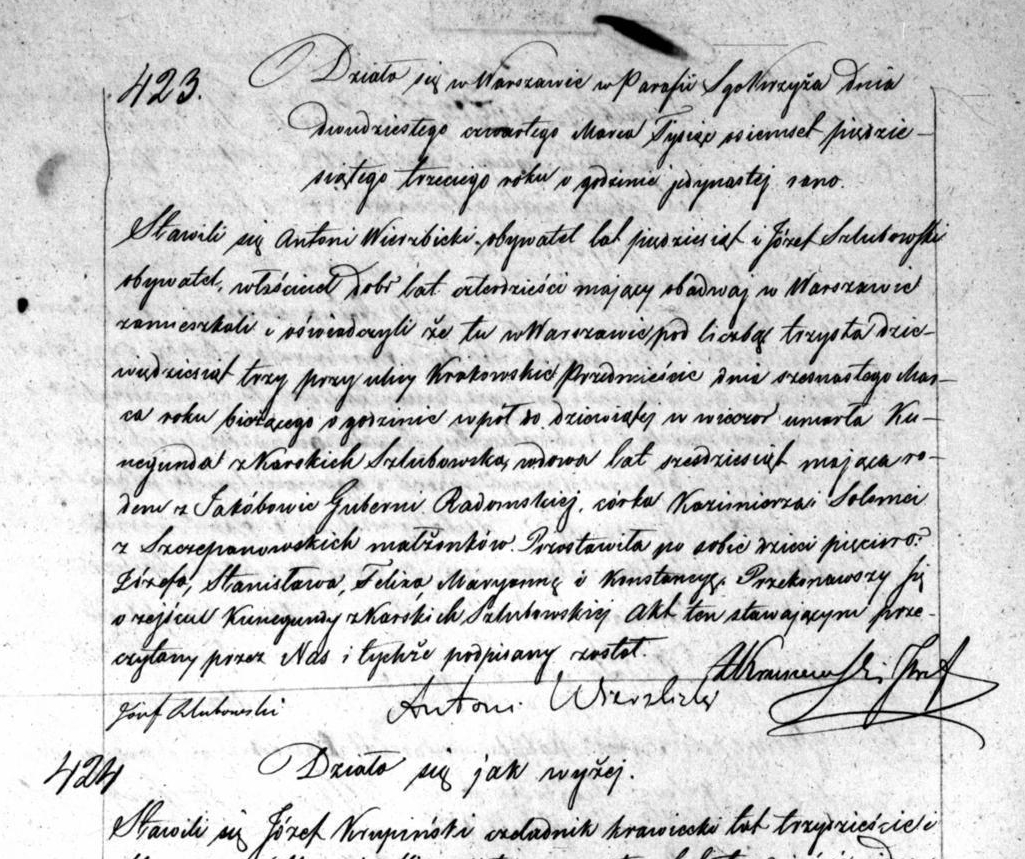 423. Działo się w Warszawie w Parafii Sgo Krzyża dnia
dwudziestego czwartego Marca Tysiąc osiemset piędzie-
siątego trzeciego roku o godzinie jedynastej rano.
Stawili się Antoni Wierzbicki obywatel lat pięдziesiąt i Józef Szlubowski
obywatel, właściciel dóbr lat czterdzieści mający obadwaj w Warszawie
zamieszkali i oświadczyli że tu w Warszawie pod liczbą trzysta dzie-
więdziesiąt trzy przy ulicy Krakowskie Przedmieście dnia szesnastego Mar-
ca roku bieżącego o godzinie wpół do dziewiątej w wieczór umarła Ku-
negunda z Karskich Szlubowska, wdowa lat sześdziesiąt mająca ro-
dem z Jakóbowic Guberni Radomskiej, córka Kazimierza i Salomei
z Szczepanowskich małżonków. Pozostawiła po sobie dzieci pięcioro:
Józefa, Stanisława, Felixa, Maryannę i Konstancyę. Przekonawszy się
o zejściu Kunegundy z Karskich Szlubowskiej Akt ten stawającym prze-
czytany przez Nas i tychże podpisany został.
Józef Szlubowski Antoni Wierzbicki
424 Działo się jak wyżej.
Stawili się Józef Krupiński czeladnik krawiecki lat trzydzieście i